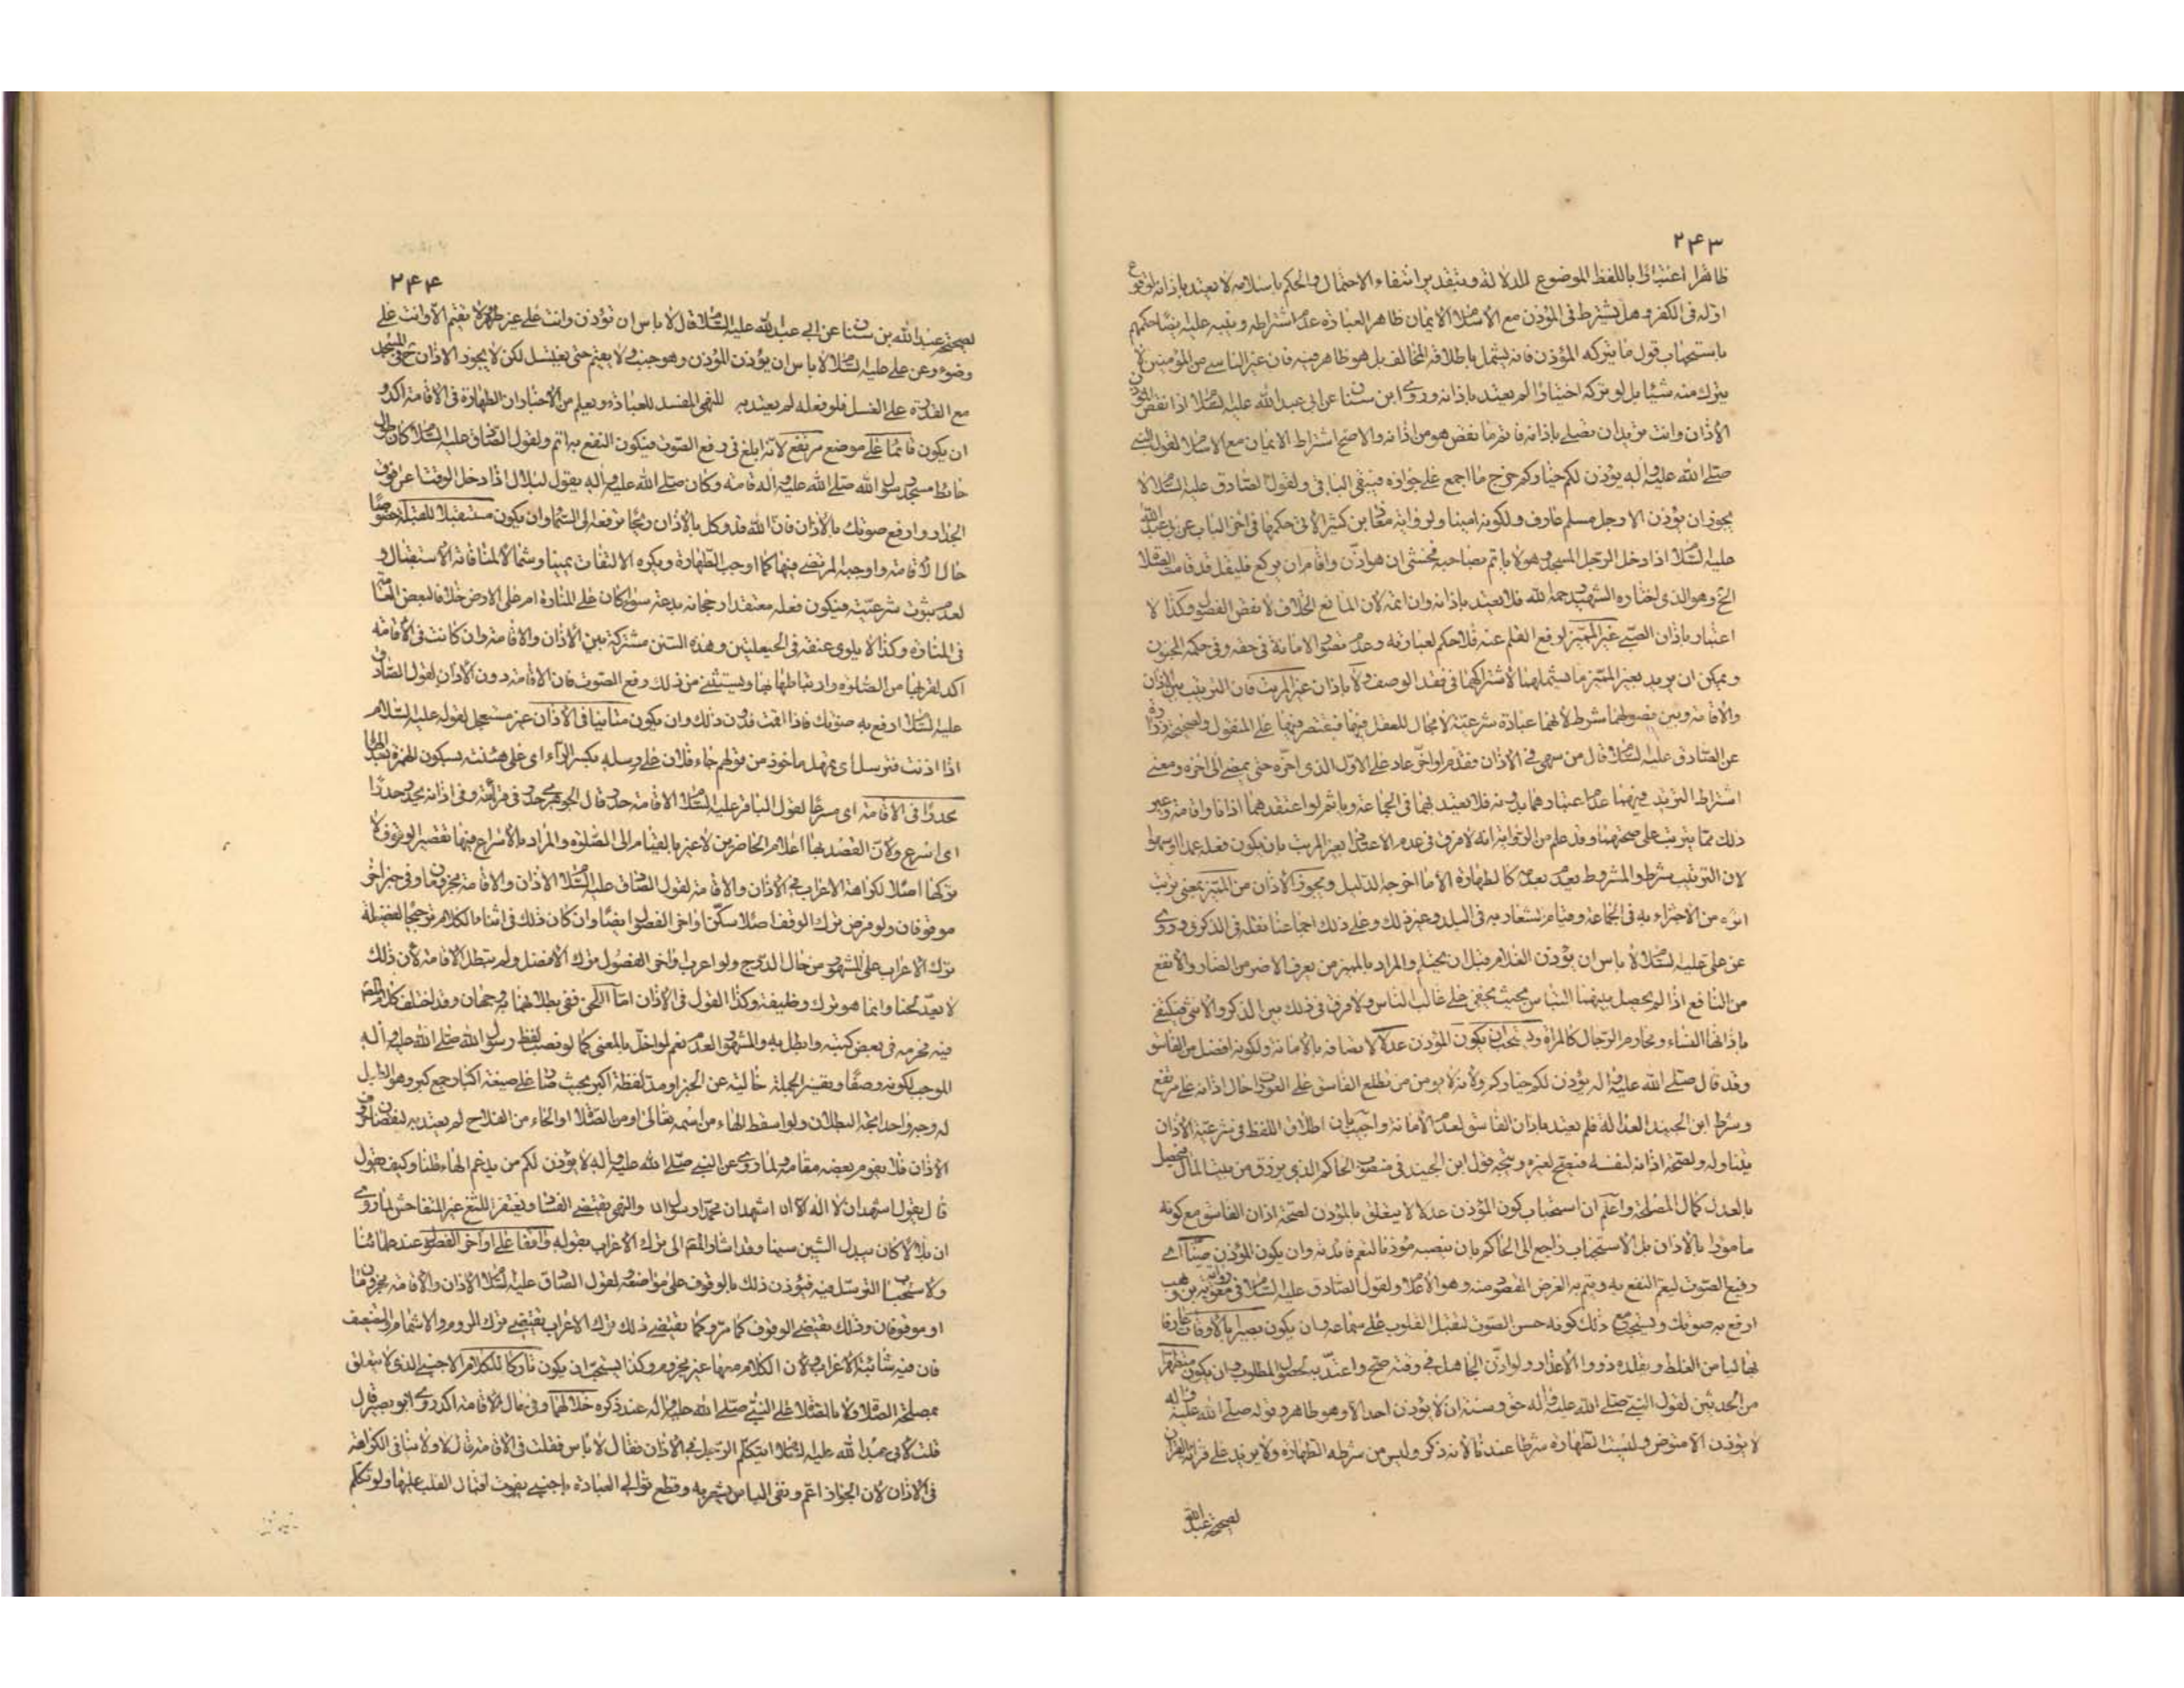 ٢۴٣
ظاهرا اعتبارا باللفظ الموضوع للدلالة وبتقدير انتفاء الاحتمال والحكم باسلامه لا يعتد باذانه لوقوع
اوله فى الكفر وهل يشترط فى المؤذن مع الاسلام الايمان ظاهر العبادة عدم اشتراطه وينبه عليه ايضا حكمهم
باستحباب قول ما يتركه المؤذن فانه يشمل باطلاقه المخالف بل هو ظاهر فيه فان غير الناسى من المؤمنين لا
يترك منه شيئا بل لو تركه اختيارا لم يعتد باذانه وروى ابن سنان عن ابى عبد الله عليه السلام اذا نقص المؤذن
الاذان وانت تريد ان تصلى باذانه فاتم ما نقص هو من اذانه والاصح اشتراط الايمان مع الاسلام لقول النبى
صلى الله عليه وآله يؤذن لكم خياركم خرج ما اجمع على جوازه فيبقى الباقى ولقول الصادق عليه السلام لا
يجوز ان يؤذن الا رجل مسلم عارف ولكونه امينا ولرواية معاذ بن كثير الاتى حكمها فى اخر الباب عن ابى عبد الله
عليه السلام اذا دخل الرجل المسجد وهو لا ياتم بصاحبه فخشى ان هو اذن واقام ان يركع فليقل قد قامت الصلاة
الخ وهو الذى اختاره الشهيد رحمه الله فلا يعتد باذانه وان اتمه لان المانع الخلاف لا نقص الفصول وكذا لا
اعتبار باذان الصبى غير المميز لرفع القلم عنه فلا حكم لعبارته وعدم تصور الامانة فى حقه وفى حكمه المجنون
ويمكن ان يريد بغير المميز ما يشملهما لاشتراكهما فى فقد الوصف ولا باذان غير المرتب فان الترتيب بين الاذان
والاقامة وبين فصولهما شرط لانهما عبادة شرعية لا مجال للعقل فيها فيقتصر فيهما على المنقول ولصحيحة زرارة
عن الصادق عليه السلام قال من سهى فى الاذان فقدم او اخر عاد على الاول الذى اخره حتى يمضى الى اخره ومعنى
اشتراط الترتيب فيهما عدم اعتبارهما بدونه فلا يعتد بهما فى الجماعة وياثم لو اعتقدهما اذانا واقامة وغير
ذلك مما يترتب على صحتهما وقد علم من الرواية انه لا فرق فى عدم الاعتداد بغير المرتب بان يكون فعله عمدا او سهوا
لان الترتيب شرط والمشروط يعدم بعدمه كالطهارة الا ما اخرجه الدليل ويجوز الاذان من المميز بمعنى ترتب
اثره من الاجتزاء به فى الجماعة وقيام الشعار به فى البلد وغير ذلك وعلى ذلك اجماعنا نقله فى الذكرى وروى
عن على عليه السلام لا باس ان يؤذن الغلام قبل ان يحتلم والمراد بالمميز من يعرف الاضر من الضار والانفع
من النافع اذا لم يحصل بينهما التباس بحيث يخفى على غالب الناس ولا فرق فى ذلك بين الذكر والانثى فيكتفى
باذانها النساء ومحارم الرجال كالمراة ويستحب ان يكون المؤذن عدلا لاتصافه بالامانة ولكونه افضل من الفاسق
وقد قال صلى الله عليه وآله يؤذن لكم خياركم ولانه لا يؤمن من تطلع الفاسق على العورات حال اذانه على مرتفع
وشرط ابن الجنيد العدالة فلم يعتد باذان الفاسق لعدم الامانة واجيب بان اطلاق اللفظ فى شرعية الاذان
يتناوله ولصحة اذانه لنفسه فتصح لغيره ويتجه قول ابن الجنيد فى منصوب الحاكم الذى يرزق من بيت المال لتحصيل
بالعدل كمال المصلحة واعلم ان استحباب كون المؤذن عدلا لا يتعلق بالمؤذن لصحة اذان الفاسق مع كونه
مامورا بالاذان بل الاستحباب راجع الى الحاكم بان ينصبه مؤذنا لتعم فائدته وان يكون المؤذن صيتا اى
رفيع الصوت ليعم النفع به ويتم به الغرض المقصود منه وهو الاعلام ولقول الصادق عليه السلام فى رواية معوية بن وهب
ارفع به صوتك ويستحب مع ذلك كونه حسن الصوت لتقبل القلوب على سماعه وان يكون بصيرا بالاوقات عارفا
بها ليامن الغلط ويقلده ذووا الاعذار ولو اذن الجاهل فى وقته صح واعتد به لحصول المطلوب وان يكون متطهرا
من الحدثين لقول النبى صلى الله عليه وآله حق وسنة ان لا يؤذن احد الا وهو طاهر وقوله صلى الله عليه وآله
لا يؤذن الا متوضى وليست الطهارة شرطا عندنا لانه ذكر وليس من شرطه الطهارة ولا يزيد على قراءة القران
لصحيحة عبد الله
٢۴۴
لصحيحة عبد الله بن سنان عن ابى عبد الله عليه السلام قال لا باس ان تؤذن وانت على غير طهر ولا تقيم الا وانت على
وضوء وعن على عليه السلام لا باس ان يؤذن المؤذن وهو جنب ولا يقيم حتى يغتسل لكن لا يجوز الاذان ح فى المسجد
مع القدرة على الغسل فلو فعله لم يعتد به للنهى المفسد للعبادة ويعلم من الاخبار ان الطهارة فى الاقامة اكد و
ان يكون قائما على موضع مرتفع لانه ابلغ فى رفع الصوت فيكون النفع به اتم ولقول الصادق عليه السلام كان طول
حائط مسجد رسول الله صلى الله عليه وآله قامة وكان صلى الله عليه وآله يقول لبلال اذا دخل الوقت اعل فوق
الجدار وارفع صوتك بالاذان فان الله قد وكل بالاذان ريحا ترفعه الى السماء وان يكون مستقبلا للقبلة خصوصا
حال الاقامة واوجبه المرتضى فيها كما اوجب الطهارة ويكره الالتفات يمينا وشمالا لمنافاته الاستقبال و
لعدم ثبوت شرعيته فيكون فعله معتقدا رجحانه بدعة سواء كان على المنارة ام على الارض خلافا لبعض العامة
فى المنارة وكذا لا يلوى عنقه فى الحيعلتين وهذه السنن مشتركة بين الاذان والاقامة وان كانت فى الاقامة
اكد لقربها من الصلوة وارتباطها بها ويستثنى من ذلك رفع الصوت فان الاقامة دون الاذان لقول الصادق
عليه السلام ارفع به صوتك فاذا اقمت فدون ذلك وان يكون متانيا فى الاذان غير مستعجل لقوله عليه السلام
اذا اذنت فترسل اى تمهل ماخوذ من قولهم جاء فلان على رسله بكسر الراء اى على هينته بسكون الهمزة بعد الهاء
محدرا فى الاقامة اى مسرعا لقول الباقر عليه السلام الاقامة حدر قال الجوهرى حدر فى قراءته وفى اذانه يحدر حدرا
اى اسرع ولان القصد بها اعلام الحاضرين لا غير بالقيام الى الصلوة والمراد بالاسراع فيها تقصير الوقوف لا
تركها اصلا لكراهة الاعراب فى الاذان والاقامة لقول الصادق عليه السلام الاذان والاقامة مجزومان وفى خبر اخر
موقوفان ولو فرض ترك الوقف اصلا سكن اواخر الفصول ايضا وان كان ذلك فى اثناء الكلام ترجيحا لفضيلة
ترك الاعراب على المشهور من حال الدرج ولو اعرب اواخر الفصول ترك الافضل ولم تبطل الاقامة لان ذلك
لا يعد لحنا وانما هو ترك وظيفة وكذا القول فى الاذان اما اللحن ففى بطلانهما وجهان وقد اختلف كلام المصنف
فيه فحرمه فى بعض كتبه وابطل به والمشهور العدم نعم لو اخل بالمعنى كما لو نصب لفظ رسول الله صلى الله عليه وآله
الموجب لكونه وصفا وتغيير الجملة خالية عن الخبر او مد لفظة اكبر بحيث صار على صيغة اكبار جمع كبر وهو الطبل
له وجه واحد اتجه البطلان ولو اسقط الهاء من اسمه تعالى او من الصلاة او الحاء من الفلاح لم يعتد به لنقصان حروف
الاذان فلا يقوم بعضه مقامه لما روى عن النبى صلى الله عليه وآله لا يؤذن لكم من يدغم الهاء قلنا وكيف يقول
قال يقول اشهدان لا اله الا ال اشهد ان محمدا رسول ال والنهى يقتضى الفساد ويغتفر اللثغ غير المتفاحش لما روى
ان بلالا كان يبدل الشين سينا وقد اشار المص الى ترك الاعراب بقوله واقفا على اواخر الفصول عند علمائنا
ولاستحباب الترسل فيه فيؤذن ذلك بالوقوف على مواضعه لقول الصادق عليه السلام الاذان والاقامة مجزومان
او موقوفان وذلك يقتضى الوقوف كما مر وكما يقتضى ذلك ترك الاعراب يقتضى ترك الروم والاشمام والتضعيف
فان فيه شائبة الاعراب ولان الكلام معها غير مجزوم وكذا يستحب ان يكون تاركا للكلام الاجنبى الذى لا يتعلق
بمصلحة الصلاة ولا بالصلاة على النبى صلى الله عليه وآله عند ذكره خلالهما وفى حال الاقامة اكد روى ابو بصير قال
قلت لابى عبد الله عليه السلام ايتكلم الرجل فى الاذان فقال لا باس فقلت فى الاقامة قال لا ولا ينافى الكراهة
فى الاذان لان الجواز اعم ونفى الباس يشعر به وقطع توالى العبادة باجنبى يفوت اقبال القلب عليها ولو تكلم